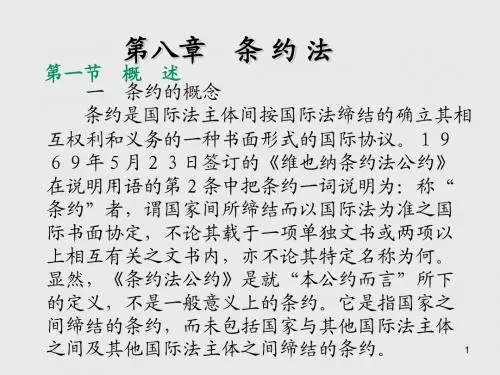 第八章　条 约 法
第一节　概　述
一　条约的概念
条约是国际法主体间按国际法缔结的确立其相
互权利和义务的一种书面形式的国际协议。１９
６９年５月２３日签订的《维也纳条约法公约》
在说明用语的第２条中把条约一词说明为：称“
条约”者，谓国家间所缔结而以国际法为准之国
际书面协定，不论其载于一项单独文书或两项以
上相互有关之文书内，亦不论其特定名称为何。
显然，《条约法公约》是就“本公约而言”所下
的定义，不是一般意义上的条约。它是指国家之
间缔结的条约，而未包括国家与其他国际法主体
之间及其他国际法主体之间缔结的条约。
1